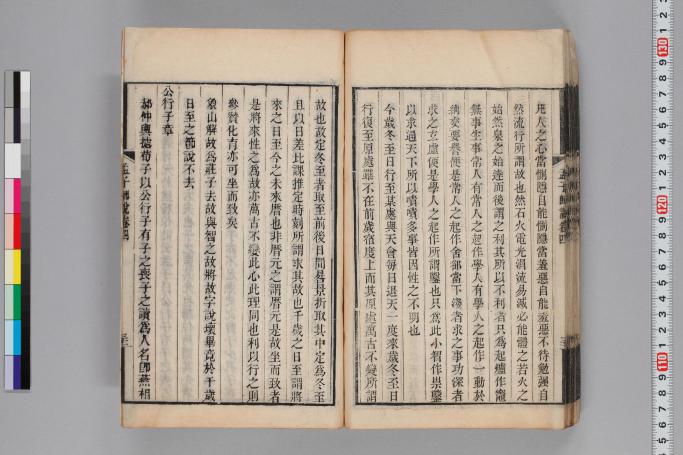 凡人之心當惻隱自能惻隱當羞惡自能羞惡不待勉强自
然流行所謂故也然石火電光涓流易滅必能體之若火之
始然泉之始達而後謂之利其所以不利者只為起爐作竈
無事生事常人有常人之起作學人有學人之起作一動於
納交要譽便是常人之起作舍卻當下淺者求之事功深者
求之玄虛便是學人之起作所謂鑿也只為此小智作祟鑿
以求通天下所以嘖嘖多事皆因性之不明也
今歲冬至日行至某處與天會每日退天一度來歲冬至日
行復至原處雖不在前歲宿度上而其原處萬古不變所謂
故也歲定冬至者取至前後日間晷景折取其中定為冬至
且以日差比課推定時刻所謂求其故也千歲之日至謂將
來之日至今之未來曆也非曆元之謂曆元是故坐而致者
是將來性之為故亦萬古不變此心此理同也利以行之則
參贊化育亦可坐而致矣
象山解故為莊子去故與智之故將故字說壞畢竟於千歲
日至之節說不去
公行子章
郝仲輿據荀子以公行子有子之喪子之讀為人名即燕相
孟子師說卷四